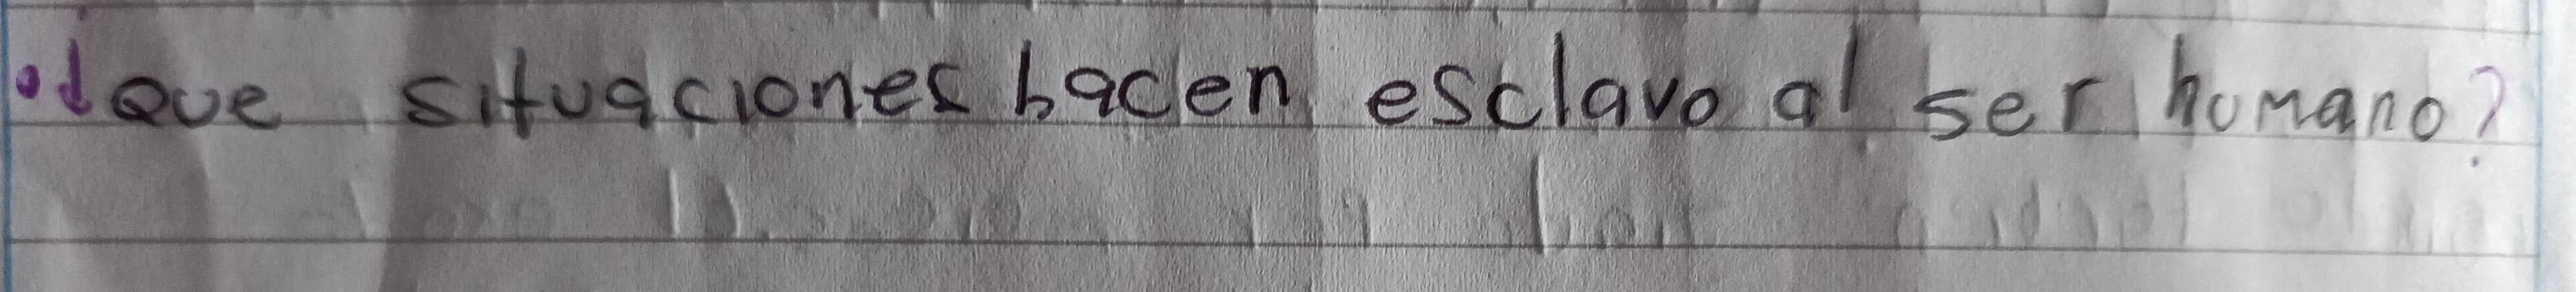 • ¿Que situaciones hacen esclavo al ser humano?